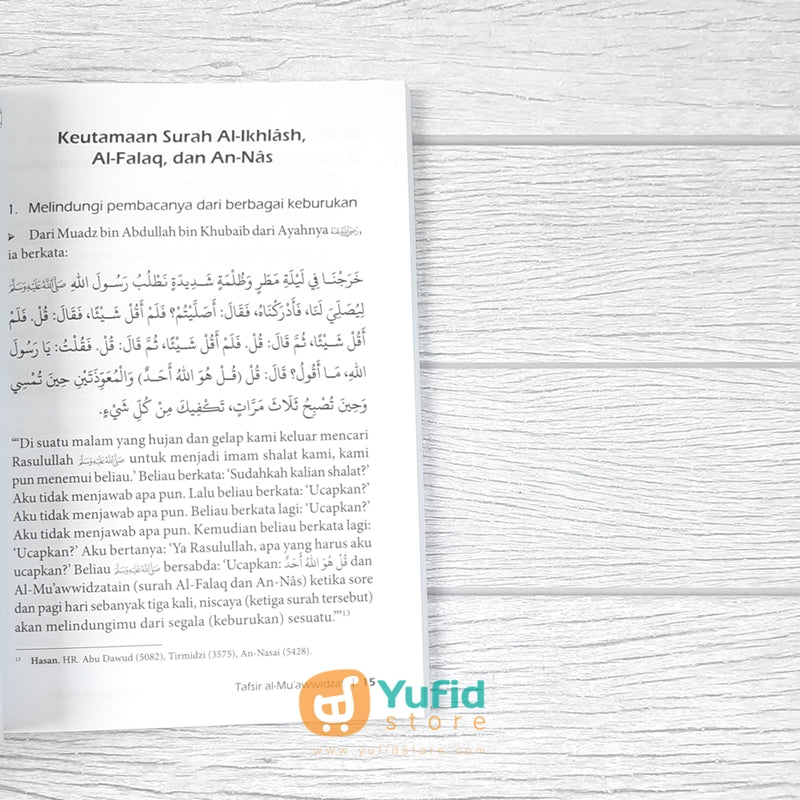 Keutamaan Surah Al-Ikhlâsh,
Al-Falaq, dan An-Nâs
1. Melindungi pembacanya dari berbagai keburukan
➢ Dari Muadz bin Abdullah bin Khubaib dari Ayahnya ,
ia berkata:
خَرَجْنَا فِي لَيْلَةِ مَطَرٍ وَظُلْمَةٍ شَدِيدَةٍ نَطْلُبُ رَسُولَ اللهِ ﷺ
لِيُصَلِّيَ لَنَا، فَأَدْرَكْنَاهُ، فَقَالَ: أَصَلَّيْتُمْ؟ فَلَمْ أَقُلْ شَيْئًا، فَقَالَ: قُلْ. فَلَمْ
أَقُلْ شَيْئًا، ثُمَّ قَالَ: قُلْ. فَلَمْ أَقُلْ شَيْئًا، ثُمَّ قَالَ: قُلْ. فَقُلْتُ: يَا رَسُولَ
اللهِ، مَا أَقُولُ؟ قَالَ: قُلْ (قُلْ هُوَ اللهُ أَحَدٌ) وَالْمُعَوِّذَتَيْنِ حِينَ تُمْسِي
وَحِينَ تُصْبِحُ ثَلَاثَ مَرَّاتٍ، تَكْفِيكَ مِنْ كُلِّ شَيْءٍ.
“‘Di suatu malam yang hujan dan gelap kami keluar mencari
Rasulullah ﷺ untuk menjadi imam shalat kami, kami
pun menemui beliau.’ Beliau berkata: ‘Sudahkah kalian shalat?’
Aku tidak menjawab apa pun. Lalu beliau berkata: ‘Ucapkan?’
Aku tidak menjawab apa pun. Beliau berkata lagi: ‘Ucapkan?’
Aku tidak menjawab apa pun. Kemudian beliau berkata lagi:
‘Ucapkan?’ Aku bertanya: ‘Ya Rasulullah, apa yang harus aku
ucapkan?’ Beliau ﷺ bersabda: ‘Ucapkan: قُلْ هُوَ اللهُ أَحَدٌ dan
Al-Mu’awwidzatain (surah Al-Falaq dan An-Nâs) ketika sore
dan pagi hari sebanyak tiga kali, niscaya (ketiga surah tersebut)
akan melindungimu dari segala (keburukan) sesuatu.’”13
13 Hasan. HR. Abu Dawud (5082), Tirmidzi (3575), An-Nasai (5428).
Tafsir al-Mu'awwidza 15
Yufid
store
www.yufidstore.com